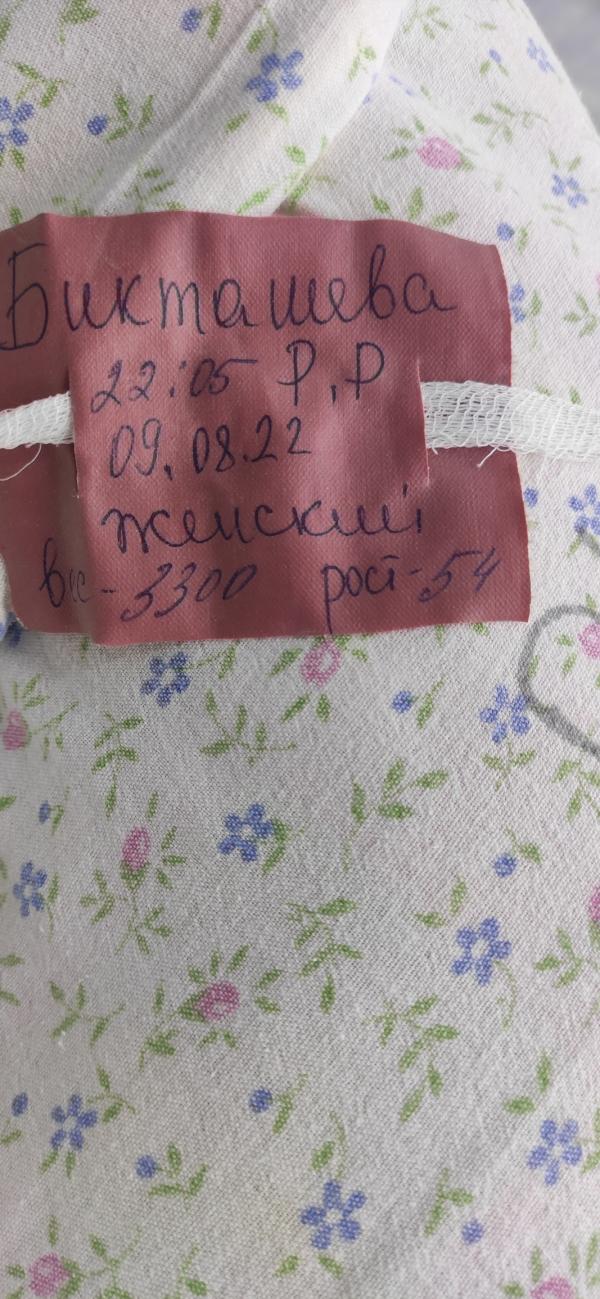 Бикташева
22:05 Р.Р
09.08.22
женский
вес-3300 рост-54